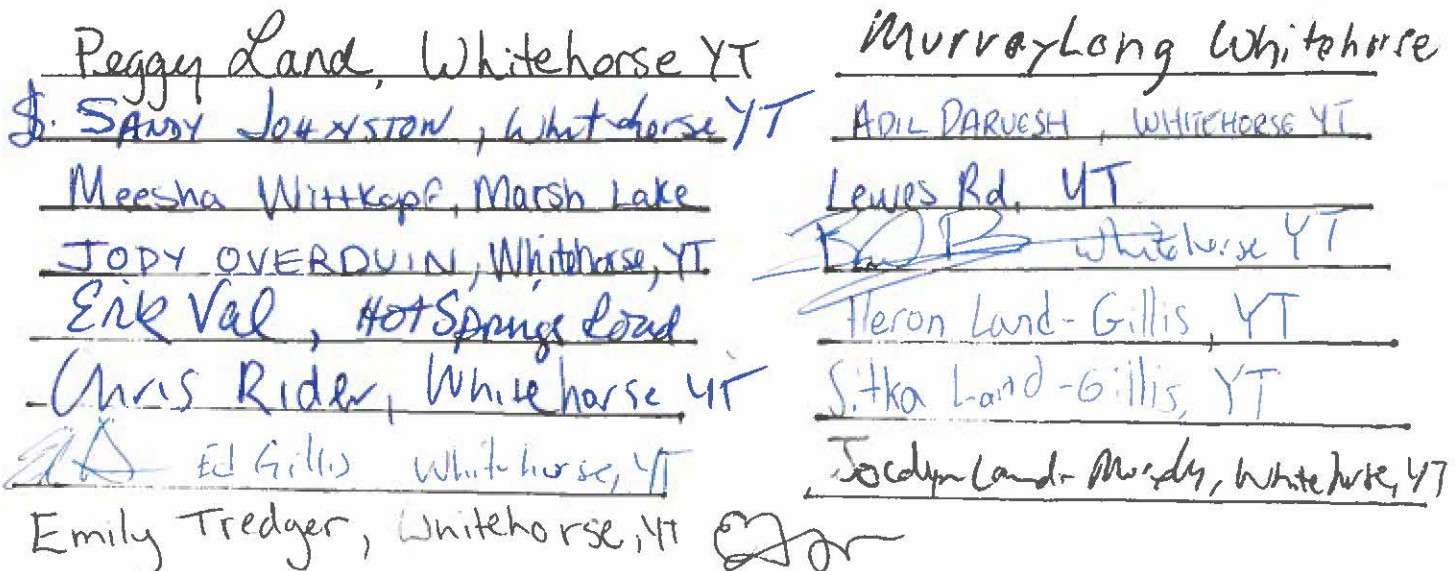 Peggy Land, Whitehorse YT
S. SANDY JOHNSTON, Whitehorse YT
Meesha Wittkopf, Marsh Lake
JODY OVERDUIN, Whitehorse, YT
Erik Val, Hot Springs Road
Chris Rider, Whitehorse YT
Ed Gillis Whitehorse, YT
Emily Tredger, Whitehorse, YT
Murray Whitehorse
ADIL DARVESH, WHITEHORSE YT
Lewes Rd, YT
Whitehorse YT
Heron Land-Gillis, YT
Sitka Land-Gillis, YT
Jocelyn Land-Murphy, Whitehorse, YT